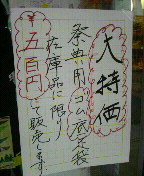 大特価
祭典用ゴム底足袋
在庫品に限り
¥五百円
にて販売します